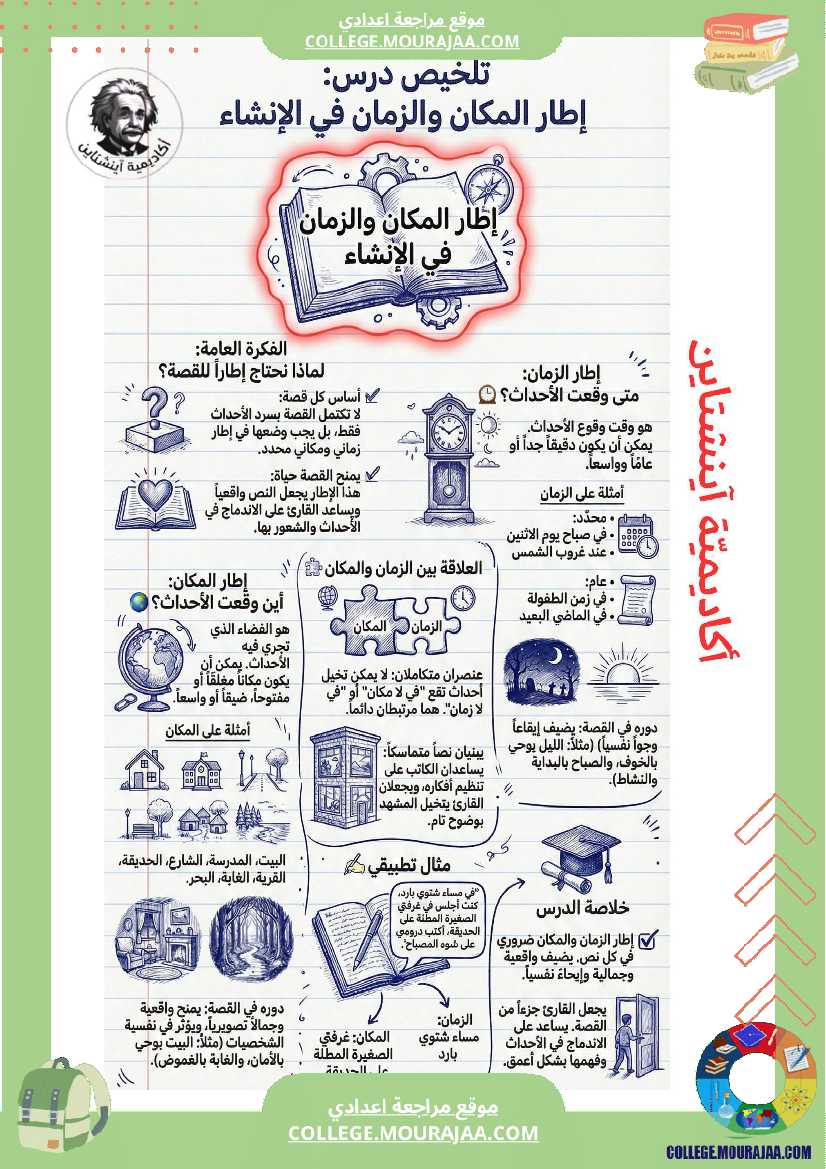 موقع مراجعة اعدادي
COLLEGE.MOURAJAA.COM
تلخيص درس:
إطار المكان والزمان في الإنشاء
أكاديمية آينشتاين
إطار المكان والزمان
في الإنشاء
إطار الزمان:
متى وقعت الأحداث؟
هو وقت وقوع الأحداث.
يمكن أن يكون دقيقاً جداً أو
عامًا وواسعاً.
أمثلة على الزمان
• محدّد:
• في صباح يوم الاثنين
• عند غروب الشمس
• عام:
• في زمن الطفولة
• في الماضي البعيد
دوره في القصة: يضيف إيقاعاً
وجواً نفسياً) (مثلاً: الليل يوحي
بالخوف، والصباح بالبداية
والنشاط).
الفكرة العامة:
لماذا نحتاج إطاراً للقصة؟
أساس كل قصة:
لا تكتمل القصة بسرد الأحداث
فقط، بل يجب وضعها في إطار
زماني ومكاني محدد.
يمنح القصة حياة:
هذا الإطار يجعل النص واقعياً
ويساعد القارئ على الاندماج في
الأحداث والشعور بها.
العلاقة بين الزمان والمكان
الزمان
المكان
عنصران متكاملان: لا يمكن تخيل
أحداث تقع "في لا مكان" أو "في
لا زمان". هما مرتبطان دائماً.
يبنيان نصاً متماسكاً:
يساعدان الكاتب على
تنظيم أفكاره، ويجعلان
القارئ يتخيل المشهد
بوضوح تام.
إطار المكان:
أين وقعت الأحداث؟
هو الفضاء الذي
تجري فيه
الأحداث. يمكن أن
يكون مكاناً مغلقاً أو
مفتوحاً، ضيقاً أو واسعاً.
أمثلة على المكان
البيت، المدرسة، الشارع، الحديقة،
القرية، الغابة، البحر.
دوره في القصة: يمنح واقعية
وجمالاً تصويرياً، ويؤثر في نفسية
الشخصيات (مثلاً: البيت يوحي
بالأمان، والغابة بالغموض).
مثال تطبيقي
"في مساء شتوي بارد،
كنت أجلس في غرفتي
الصغيرة المطلة على
الحديقة، أكتب دروسي
على ضوء المصباح".
الزمان:
مساء شتوي
بارد
المكان: غرفتي
الصغيرة المطلة
على الحديقة
خلاصة الدرس
إطار الزمان والمكان ضروري
في كل نص. يضيف واقعية
وجمالية وإيحاءً نفسياً.
يجعل القارئ جزءاً من
القصة. يساعد على
الاندماج في الأحداث
وفهمها بشكل أعمق.
أكاديميّة آينشتاين
موقع مراجعة اعدادي
COLLEGE.MOURAJAA.COM
COLLEGE.MOURAJAA.COM